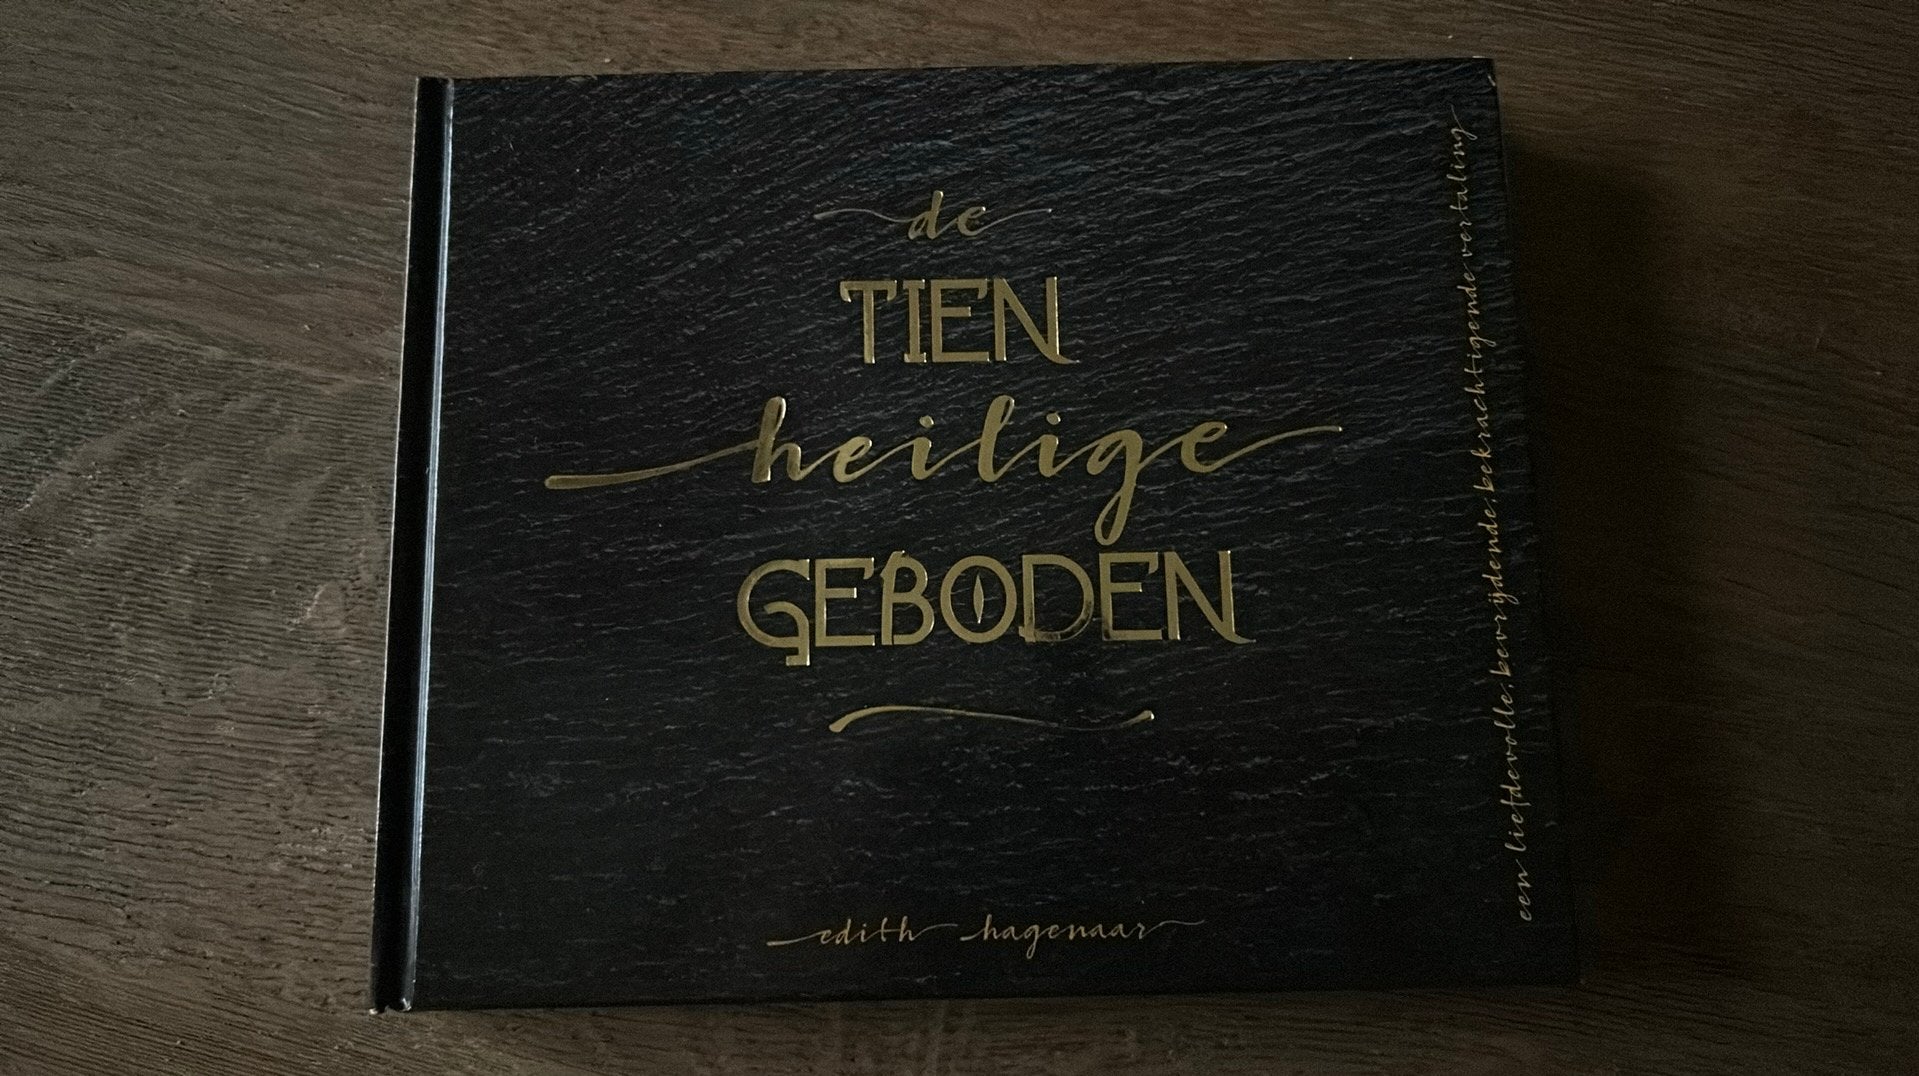 de
TIEN
heilige
GEBODEN
edith hagenaar
een liefdevolle, bevrijdende, bekrachtigende vertaling